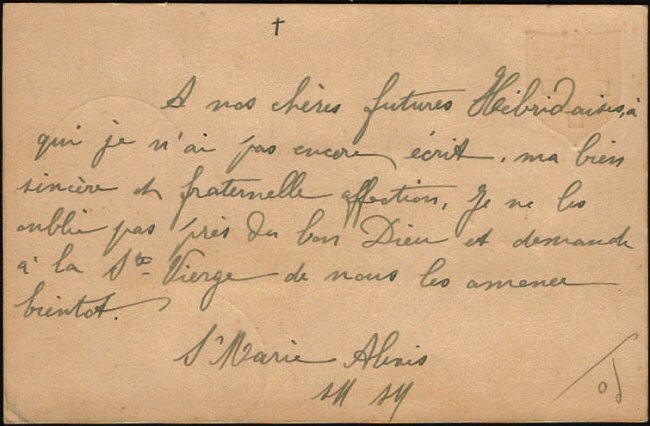 †
A nos chères futures Hébridaises, à
qui je n'ai pas encore écrit, ma bien
sincère et fraternelle affection, Je ne les
oublie pas près du bon Dieu et demande
à la Ste Vierge de nous les amener
bientot.
Sr Marie Alexis
SM SM